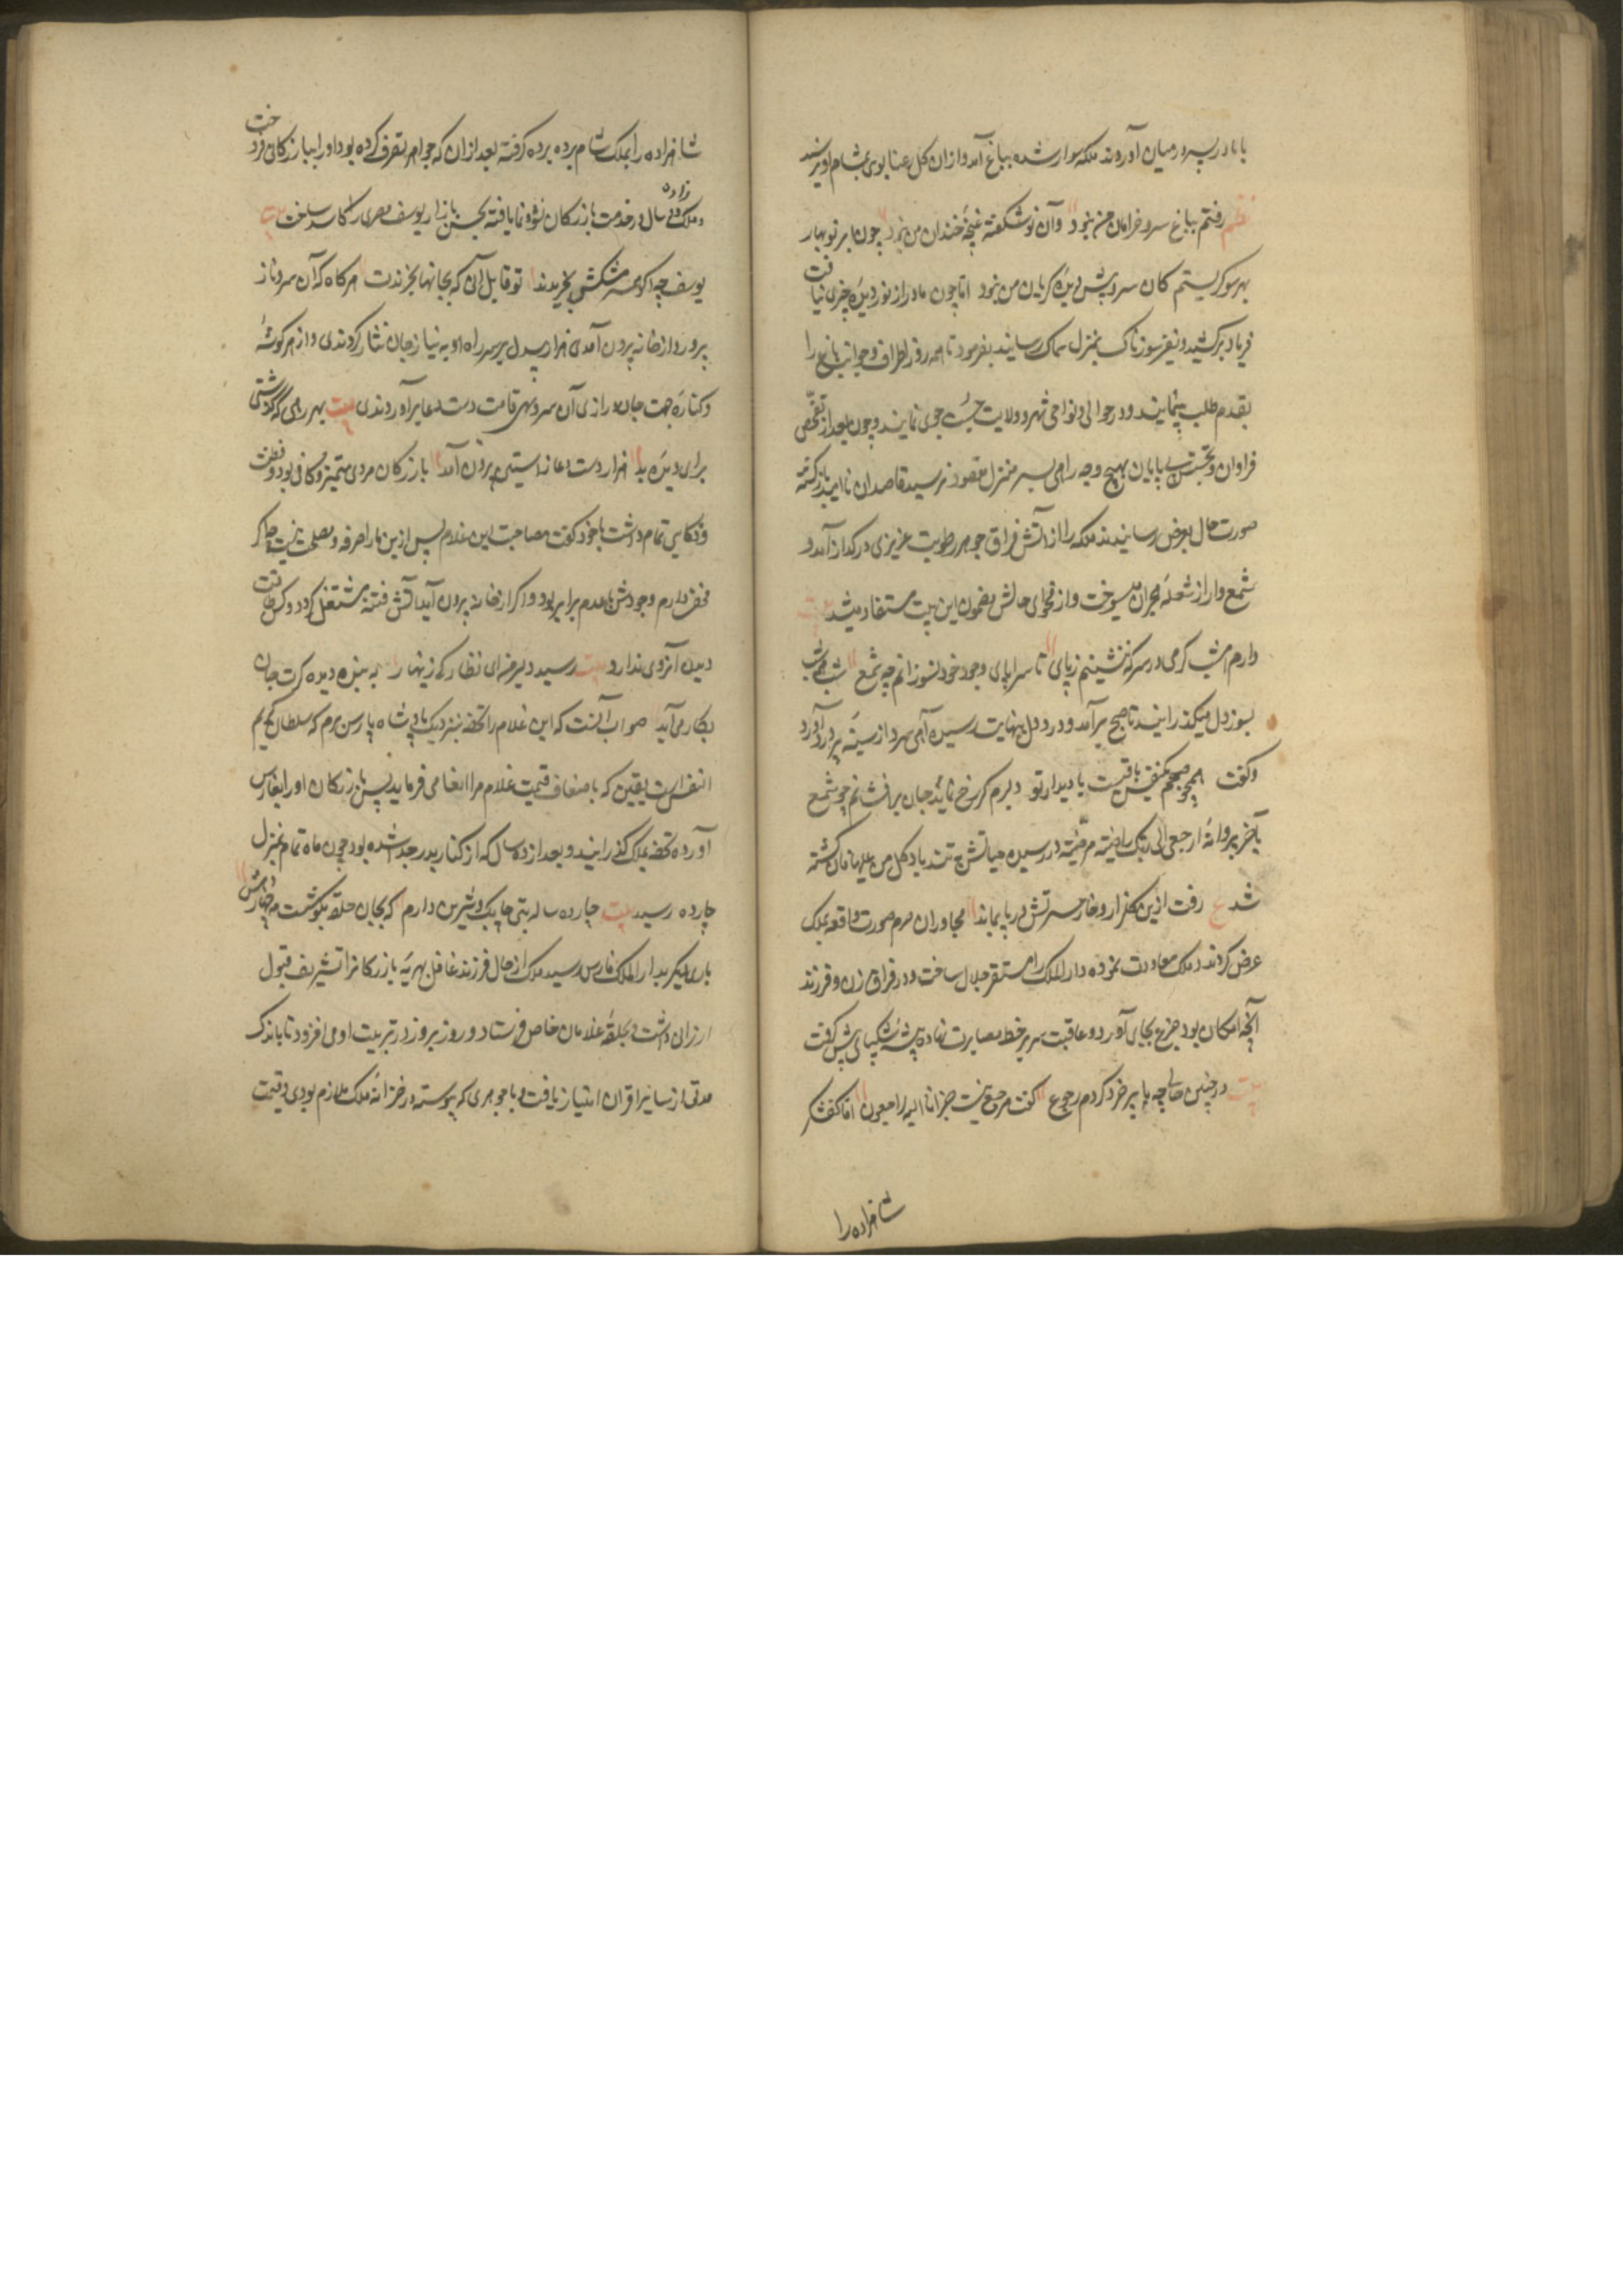 با مادر پسر در میان آوردند ملکه سوار شده بباغ آمد و ازان کل رعنا بوی بمشام او نرسید
نظم رفتم بباغ سرو خرامان من نبود وآن نوشکفته غنچهٔ خندان من نبود چون ابر نوبهار
بهر سو کریستم کان سرو پیش دیدهٔ کریان من نبود اما چون مادر از نور دیده خبری نیافت
فریاد برکشید و نفیر سوزناک بمنزل سماک رسانید بفرمود تا همه روز اطراف و جوانب باغ را
بقدم طلب پیمایند و در حوالی و نواحی شهر و ولایت جست جوی نمایند و چون بعد از تفحّص
فراوان و تجسّس بی پایان بهیچ وجه راهی بسر منزل مقصود نرسید قاصدان ناامید بازکشته
صورت حال بعرض رسانیدند ملکه را از آتش فراق جوهر رطوبت غریزی در کداز آمد و
شمع وار از شعلهٔ هجران میسوخت و از فحوای حالش مضمون این بیت مستفاد میشد بیت
دارم امشب کرمی در سر که ننشینم ز پای تا سراپای وجود خود نسوزانم چه شمع شب همه شب
بسوز دل میکذرانید تا صبح برآمد و درد دل بنهایت رسیده آهی سرد از سینهٔ پر درد برآورد
وکفت همچو صبحم یکنفس باقیست با دیدار تو دلبرم کر رخ نماید جان برافشانم چو شمع
بآخر پروانهٔ ارجعی الی ربّک راضیّة مرضیّة در رسیده حیاتش بتند باد کل من علیها فان کشته
شد ع رفت ازین کلزار و خار حسرتش در پا بماند مجاوران حرم صورت واقعه بملک
عرض کردند ملک معاودت نموده دار الملک را مستقر جلال ساخت و در فراق زن و فرزند
آنچه امکان بود جزع بجای آورد و عاقبت سر بر خط مصابرت نهاده پیشهٔ شکیبائی پیش کرفت
بیت در چنین حالی چه با پیر خرد کردم رجوع کفت مرجع نیست جز انا الیه راجعون اما کفشکر
شاهزاده را
شاهزاده را بملک شام برده برده کرفته بعد ازان که جواهر تصرف کرده بود او را ببازرکانی فروخت
و ملک زاده ده سال در خدمت بازرکان نشو و نما یافته بحسن بازار یوسف مصری را کاسد ساخت بیت
یوسف چه اکر همه بمشکش بخریدند تو قابل آنی که بجانها بخرندت هرکاه که آن سرو ناز
پرورد از خانه بیرون آمدی هزار بیدل بر سر راه او به نیاز جان نثار کردندی و از هر کوشهٔ
و کناره جهت جان درازی آن سرو سهی قامت دست دعا برآوردندی بیت بهر رهی که کذشتی
برای دیدهٔ بد هزار دست دعا ز آستین برون آمد بازرکان مردی متمیز و کافی بود و فطنت
و ذکایی تمام داشت با خود کفت مصاحبت این غلام پس ازین ما را صرفه و مصلحت نیست چه اکر
مخفی دارم وجودش با عدم برابر بود و اکر از خانه بیرون آید آتش فتنه مشتعل کردد و کس طاقت
دیدن آرزوی ندارد بیت رسید دلبر من ای نظارکی زنهار به بند دیده کرت جان
بکار می آید صواب آنست که این غلام را تحفه نزدیک پادشاه پارس برم که سلطان کریم
النفس است یقین که باضعاف قیمت غلام مرا انعامی فرماید پس بازرکان او را بفارس
آورده تحفه ملک کذرانید و بعد از ده سال که از کنار پدر جدا شده بود چون ماه تمام بمنزل
چارده رسید بیت چارده ساله بتی چابک و شیرین دارم که بجان حلقه بکوشست مه چهاردهش
باری دیکر بدار الملک فارس رسید ملک از حال فرزند غافل بهریهٔ بازرکانرا تشریف قبول
ارزانی داشت و بحلقهٔ غلامان خاص فرستاد و روز بروز در تربیت او می افزود تا باندک
مدتی از سایر اقران امتیاز یافت و با جوهری که پیوسته در خزانهٔ ملک ملازم بودی و قیمت